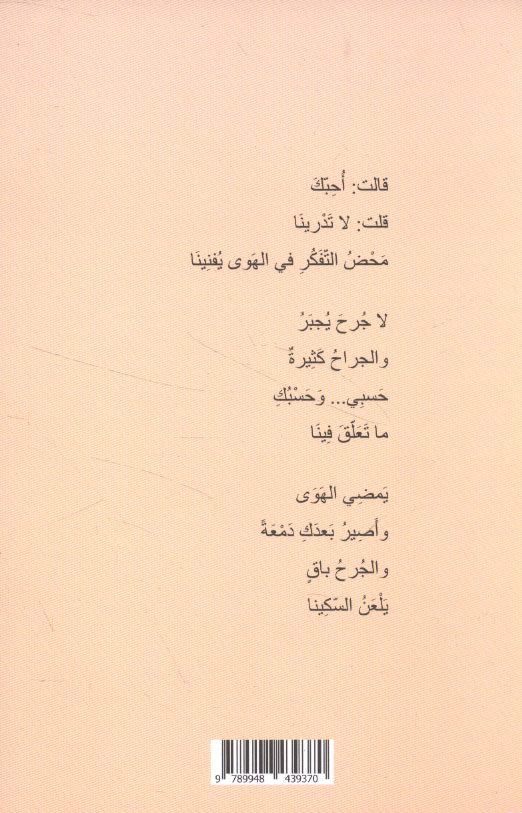 قالت: أُحِبّكَ
قلت: لا تَدْرينَا
مَحْضُ التّفَكُرِ في الهَوى يُفنِينَا
لا جُرحَ يُجبَرُ
والجراحُ كَثِيرةٌ
حَسبِي... وَحَسْبُكِ
ما تَعَلّقَ فِينَا
يَمضِي الهَوَى
وأَصِيرُ بَعدَكِ دَمْعَةً
والجُرحُ باقٍ
يَلْعَنُ السّكِينا
9 789948 439370